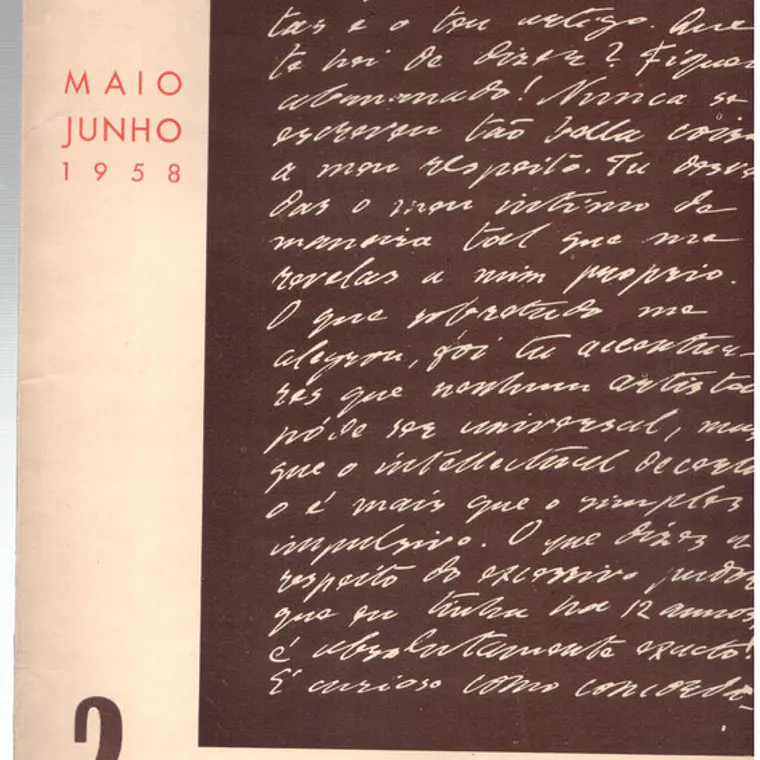 MAIO
JUNHO
1958
tas e o teu artigo. Que
te hei de dizer? Fiquei
abysmado! Nunca se
escreveu tão bella coisa
a meu respeito. Tu desve
das o meu intimo de
maneira tal que me
revelas a mim proprio.
O que sobretudo me
alegrou, foi tu accentua-
res que nenhum artista
póde ser universal, mas
que o intellectual de certo
o é mais que o simples
impulsivo. O que dizes a
respeito do excessivo pudor
que eu tinha ha 12 annos,
é absolutamente exacto!
É curioso como concorda-
2